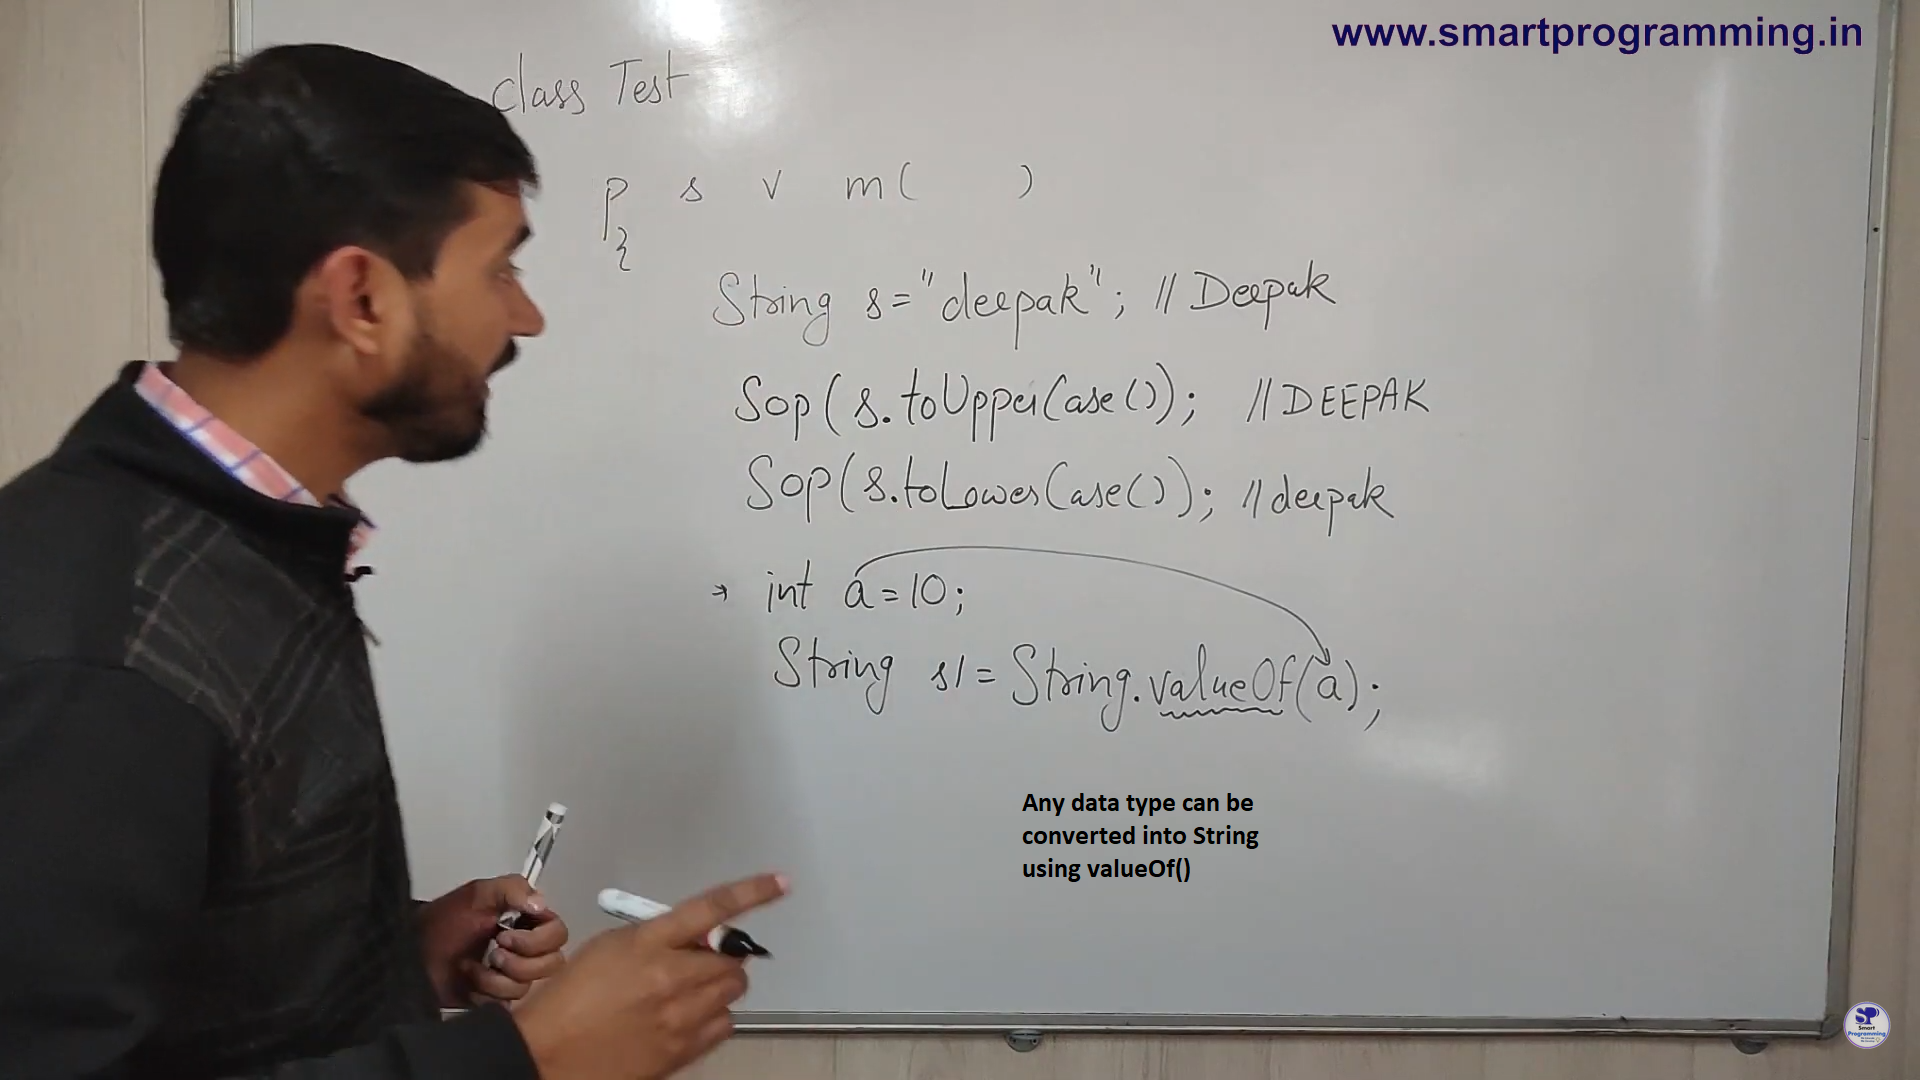 www.smartprogramming.in
class Test
p s v m( )
{
String s="deepak"; // Deepak
Sop(s.toUpperCase()); // DEEPAK
Sop(s.toLowerCase()); // deepak
→ int a=10;
String s1 = String.valueOf(a);
Any data type can be
converted into String
using valueOf()
SP
Smart
Programming